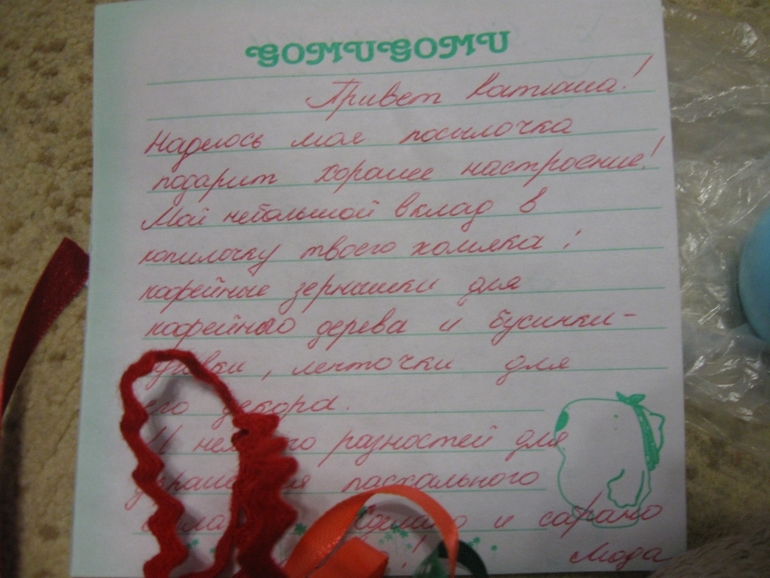 GOMUGOMU
Привет Катюша!
Надеюсь моя посылочка
подарит хорошее настроение!
Мой небольшой вклад в
копилочку твоего хомяка:
кофейные зернышки для
кофейного дерева и бусинки-
, ленточки для
его декора.
И разностей для
пасхального
и
!